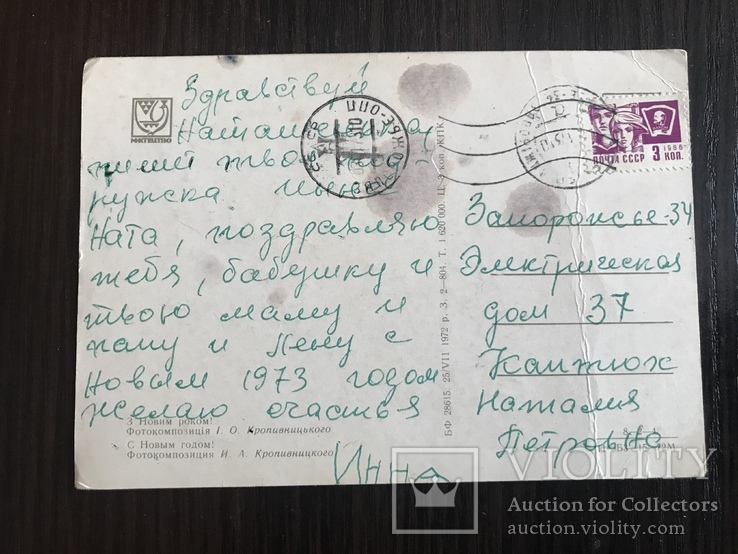 Здравствуй
Наташенька
пишет твоя под-
ружка
Ната, поздравляю
тебя, бабушку и
твою маму и
папу и Лену с
Новым 1973 годом
желаю счастья
Инна
МИСТЕЦТВО
З Новим роком!
Фотокомпозиція І. О. Кропивницького
С Новым годом!
Фотокомпозиция И. А. Кропивницкого
БФ 28615 25/VII 1972 р. З. 2—804. Т. 1 620 000. Ц. 3 коп. КПК.
ПОЧТА СССР 3 КОП.
1966
Запорожье-34
Электрическая
дом 37
Каптюх
Наталия
Петровна
VIOLITY
Auction for Collectors
auction.violity.com